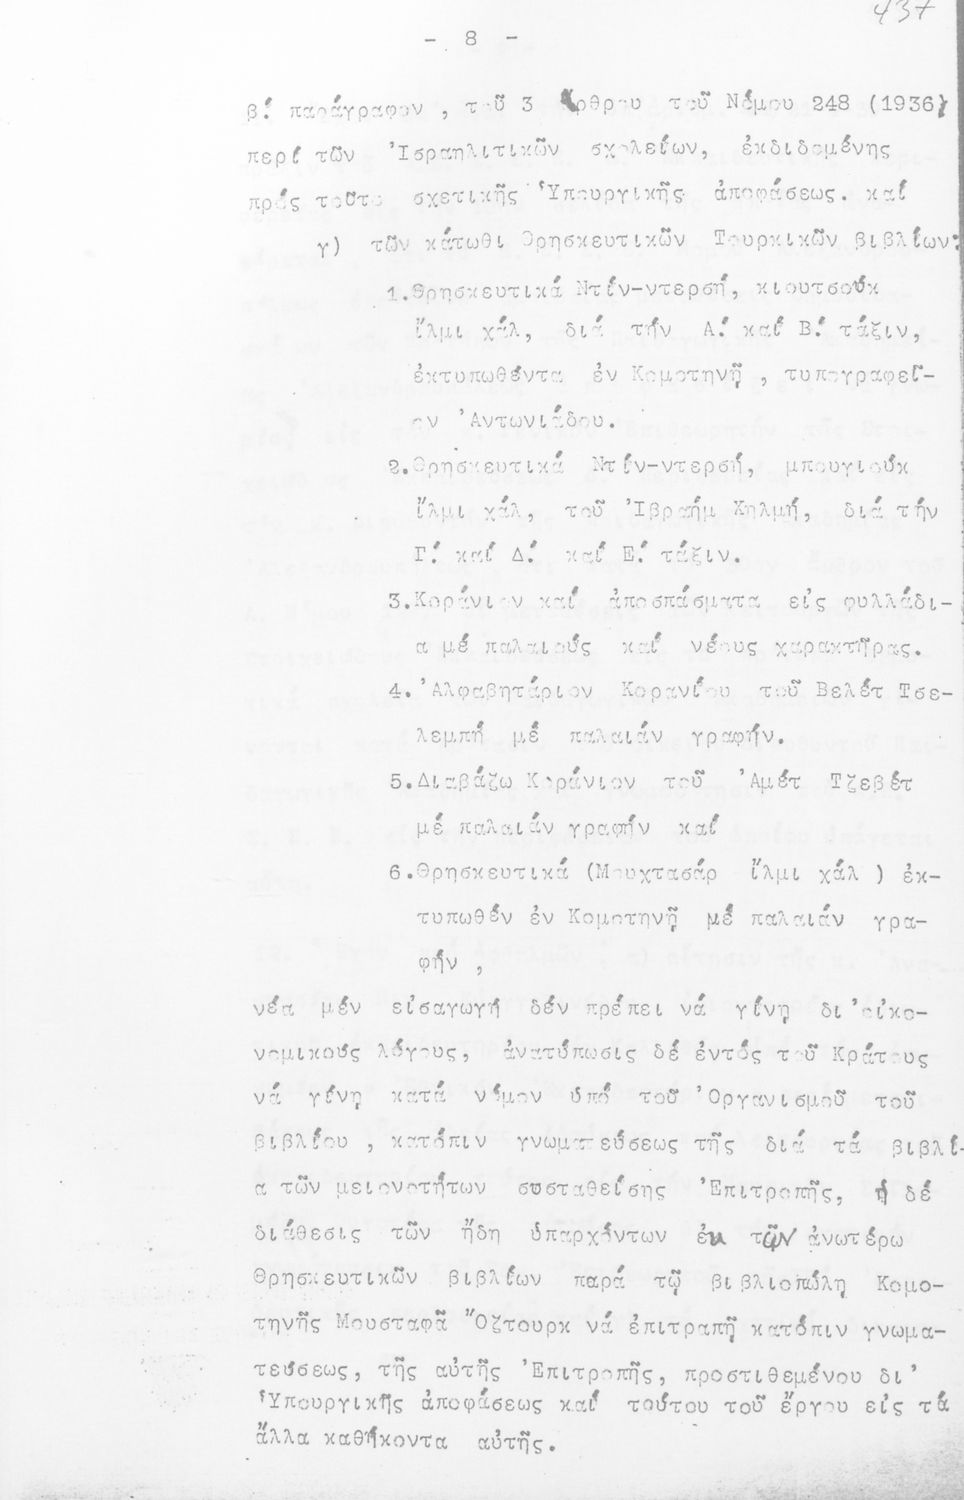 437
- 8 -
β΄ παράγραφον , τοῦ 3 ἄρθρου τοῦ Νόμου 248 (1936)
περί τῶν Ἰσραηλιτικῶν σχολείων, ἐκδιδομένης
πρός τοῦτο σχετικῆς Ὑπουργικῆς ἀποφάσεως. καί
γ) τῶν κάτωθι Θρησκευτικῶν Τουρκικῶν βιβλίων:
1.Θρησκευτικά Ντίν-ντερσή, κιουτσούκ
ἴλμι χάλ, διά τήν Α΄ καί Β΄ τάξιν,
ἐκτυπωθέντα ἐν Κομοτηνῇ , τυπογραφεῖ-
ον Ἀντωνιάδου.
2.Θρησκευτικά Ντίν-ντερσή, μπουγιούκ
ἴλμι χάλ, τοῦ Ἰβραήμ Χηλμή, διά τήν
Γ΄ καί Δ΄ καί Ε΄ τάξιν.
3.Κοράνιον καί ἀποσπάσματα εἰς φυλλάδι-
α μέ παλαιούς καί νέους χαρακτῆρας.
4.Ἀλφαβητάριον Κορανίου τοῦ Βελέτ Τσε-
λεμπή μέ παλαιάν γραφήν.
5.Διαβάζω Κοράνιον τοῦ Ἀμέτ Τζεβέτ
μέ παλαιάν γραφήν καί
6.Θρησκευτικά (Μουχτασάρ ἴλμι χάλ ) ἐκ-
τυπωθέν ἐν Κομοτηνῇ μέ παλαιάν γρα-
φήν ,
νέα μέν εἰσαγωγή δέν πρέπει νά γίνῃ δι'οἰκο-
νομικούς λόγους, ἀνατύπωσις δέ ἐντός τοῦ Κράτους
νά γίνῃ κατά νόμον ὑπό τοῦ Ὀργανισμοῦ τοῦ
βιβλίου , κατόπιν γνωματεύσεως τῆς διά τά βιβλί-
α τῶν μειονοτήτων συσταθείσης Ἐπιτροπῆς, ἡ δέ
διάθεσις τῶν ἤδη ὑπαρχόντων ἐκ τῶν ἀνωτέρω
Θρησκευτικῶν βιβλίων παρά τῷ βιβλιοπώλῃ Κομο-
τηνῆς Μουσταφᾶ Ὀζτουρκ νά ἐπιτραπῇ κατόπιν γνωμα-
τεύσεως, τῆς αὐτῆς Ἐπιτροπῆς, προστιθεμένου δι'
Ὑπουργικῆς ἀποφάσεως καί τούτου τοῦ ἔργου εἰς τά
ἄλλα καθήκοντα αὐτῆς.